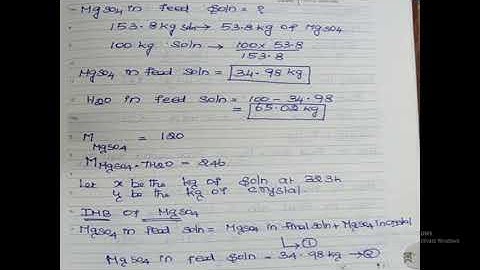 - MgSO4 in feed soln = ?
153.8 kg soln → 53.8 kg of MgSO4
100 kg soln → 100 x 53.8
153.8
MgSO4 in feed soln = 34.98 kg
H2O in feed soln = 100 - 34.98
= 65.02 kg
M MgSO4 = 120
M MgSO4.7H2O = 246
Let x be the kg of soln at 323k
y be the kg of crystal
IMB of MgSO4
MgSO4 in feed soln = MgSO4 in final soln + MgSO4 in crystal
↳ ①
MgSO4 in feed soln = 34.98 kg → ②